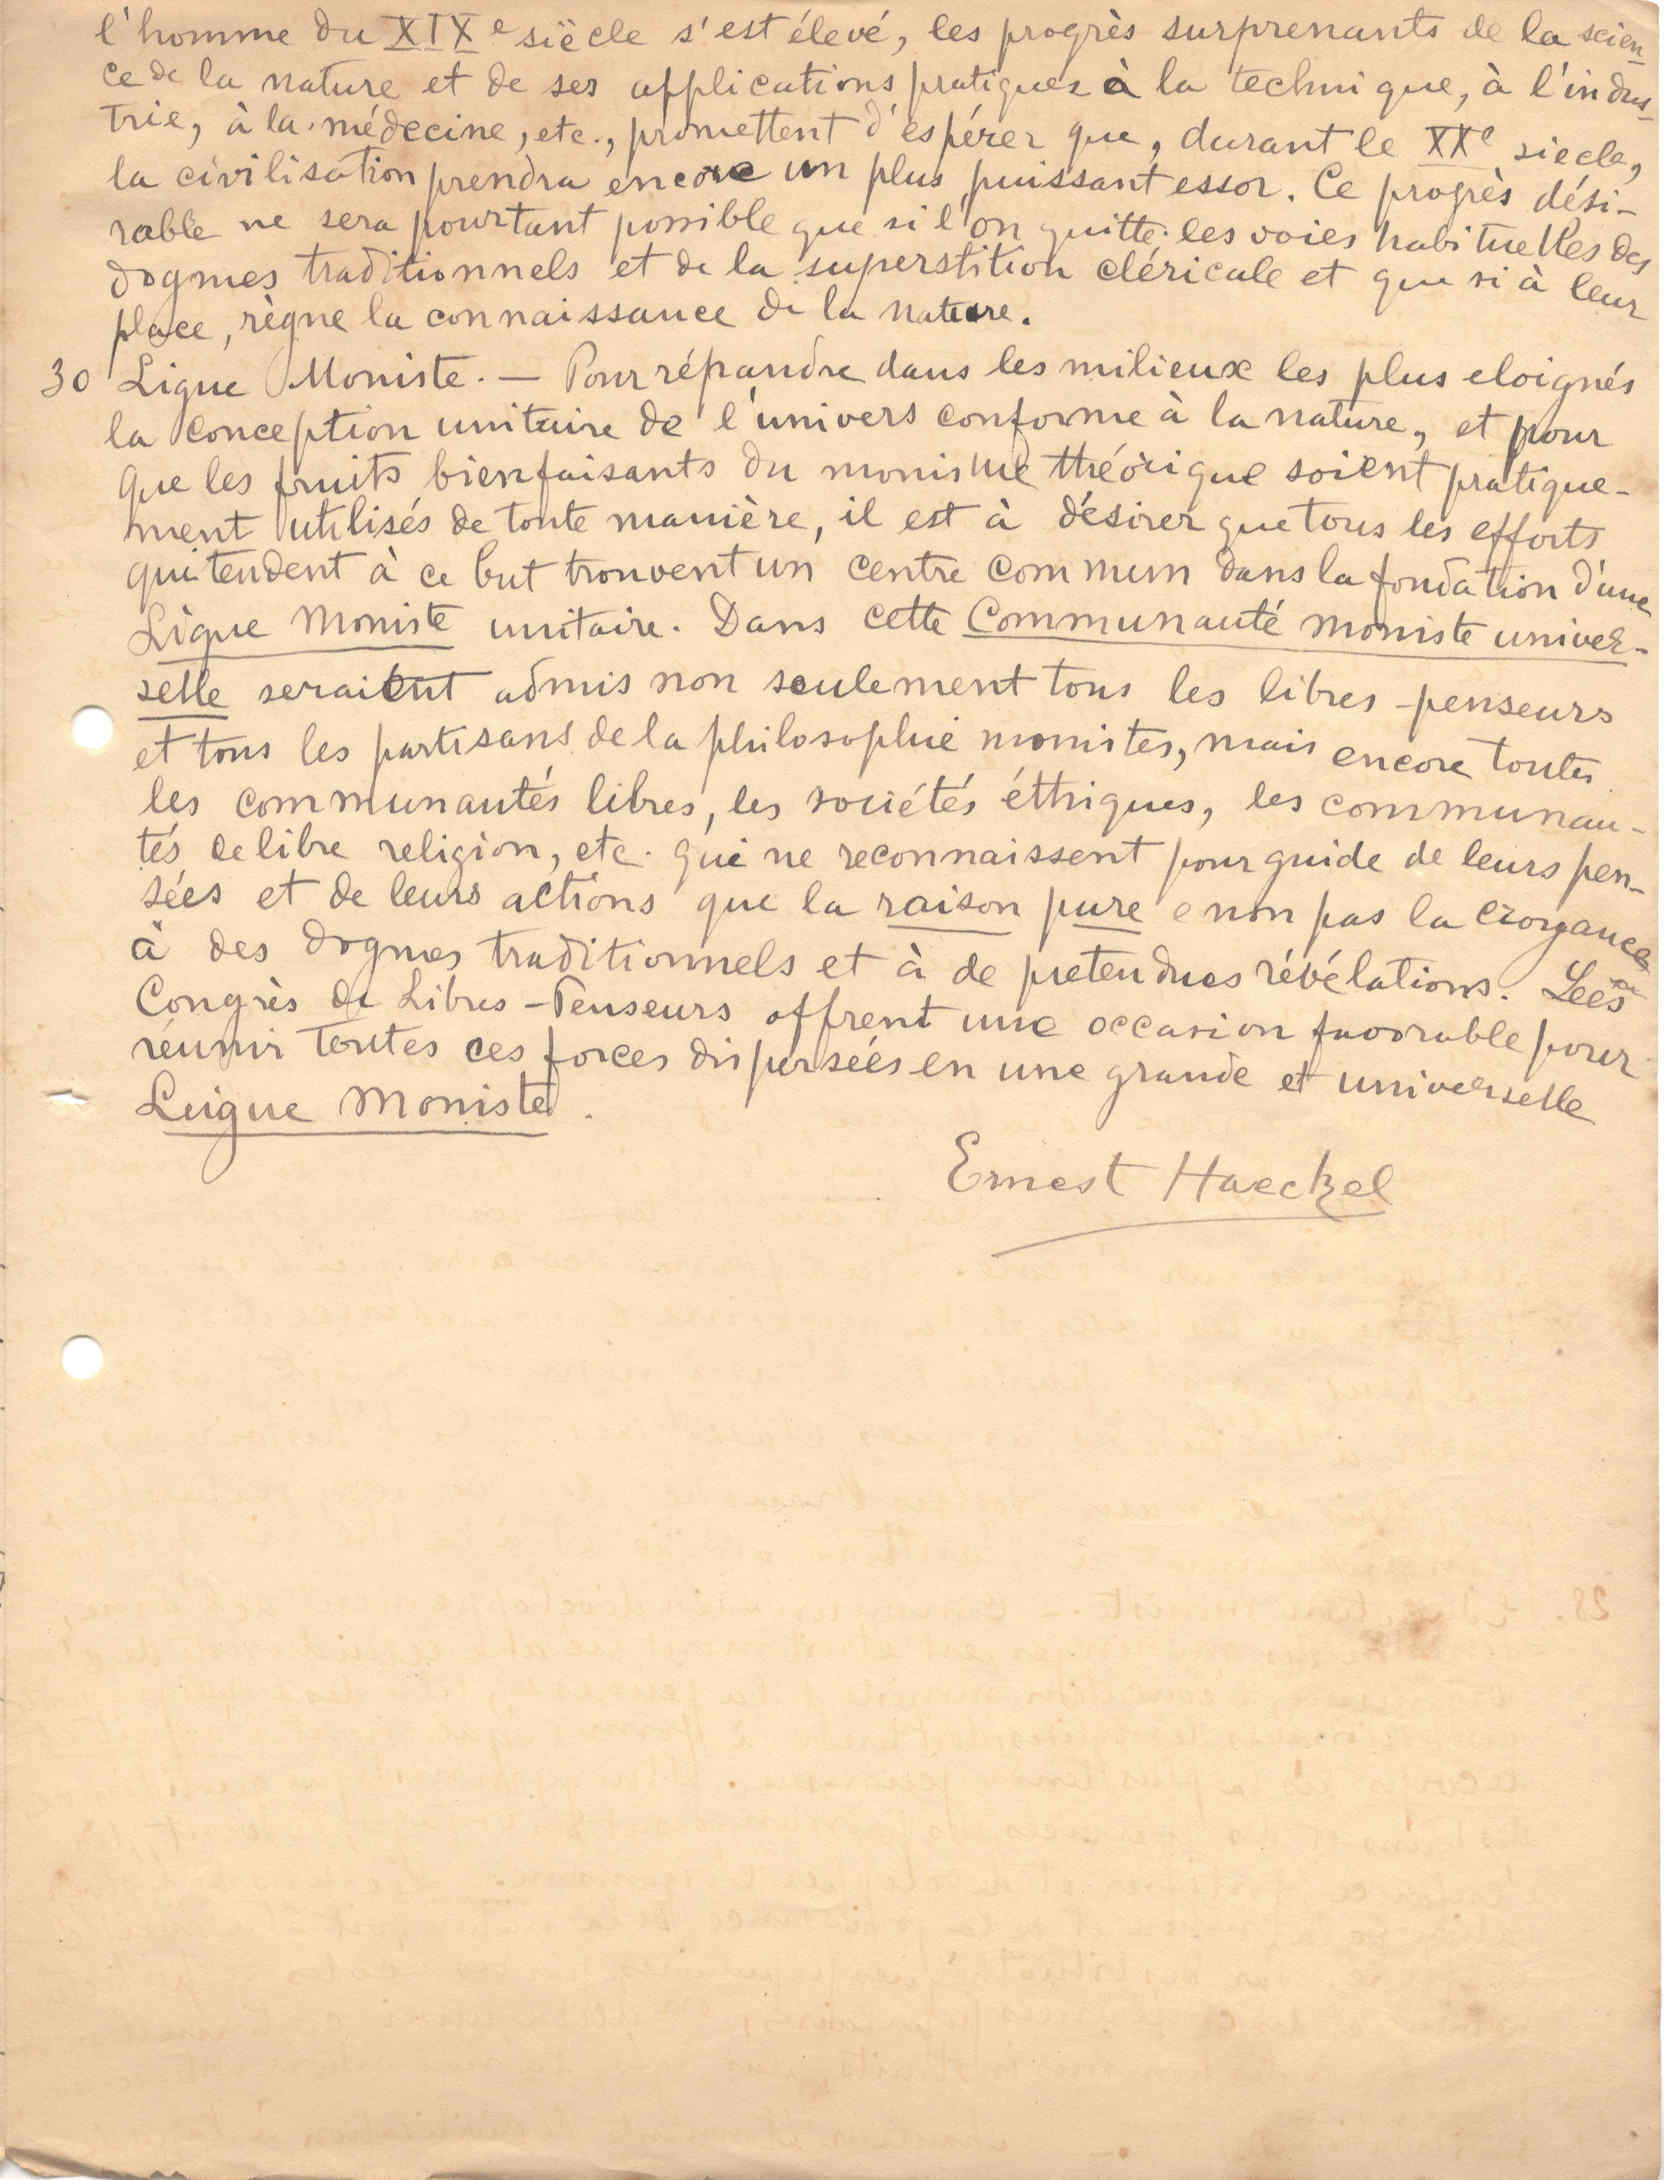 l'homme du XIXe siècle s'est élevé, les progrès surprenants de la scien-
ce de la nature et de ses applications pratiques à la technique, à l'indus-
trie, à la médecine, etc., promettent d'espérer que, durant le XXe siecle,
la civilisation prendra encore un plus puissant essor. Ce progrès dési-
rable ne sera pourtant possible que si l'on quitte les voies habituelles des
dogmes traditionnels et de la superstition cléricale et que si à leur
place, règne la connaissance de la nature.
30 Ligue Moniste. — Pour répandre dans les milieux les plus eloignés
la conception unitaire de l'univers conforme à la nature, et pour
que les fruits bienfaisants du monisme théorique soient pratique-
ment utilisés de toute manière, il est à désirer que tous les efforts
qui tendent à ce but trouvent un centre commun dans la fondation d'une
Ligue Moniste unitaire. Dans cette Communauté moniste univer-
selle seraient admis non seulement tous les libres-penseurs
et tous les partisans de la philosophie monistes, mais encore toutes
les communautés libres, les sociétés éthiques, les communau-
tés de libre religion, etc. qui ne reconnaissent pour guide de leurs pen-
sées et de leurs actions que la raison pure e non pas la croyance
à des dogmes traditionnels et à de pretendues révélations. Les
Congrès de Libres-Penseurs offrent une occasion favorable pour
réunir toutes ces forces dispersées en une grande et universelle
Luigue Moniste.
Ernest Haeckel